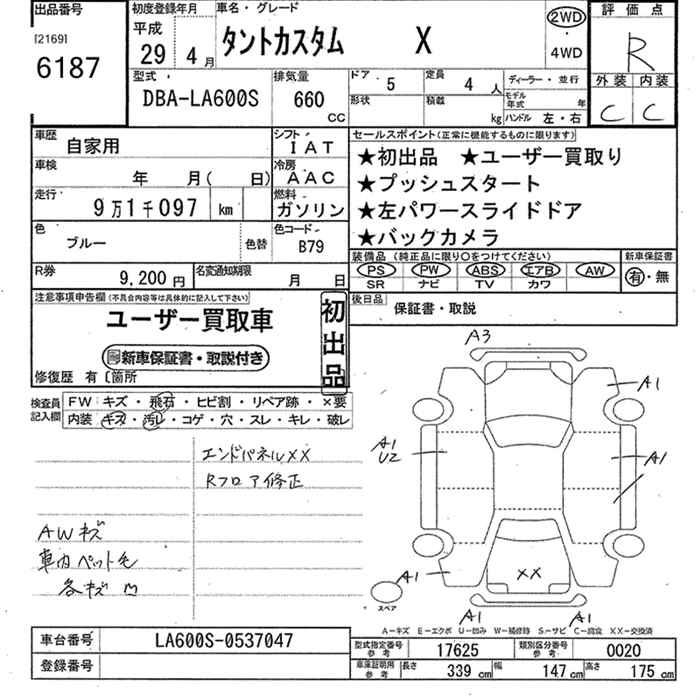 出品番号
[2169]
6187
初度登録年月
平成
29年 4月
車名・グレード
タントカスタム X
2WD
・
4WD
評価点
R
外装 内装
C C
型式
DBA-LA600S
排気量
660
CC
ドア 5
定員 4 人
形状
積載 kg
ディーラー・並行
モデル年式 年
ハンドル 左・右
車歴 自家用
シフト IAT
車検 年 月( 日)
冷房 AAC
走行 9万1千097 km
燃料 ガソリン
色 ブルー 色替
色コード B79
R券 9,200円
名変通知期限 月 日
セールスポイント(正常に機能するものに限ります)
★初出品 ★ユーザー買取り
★プッシュスタート
★左パワースライドドア
★バックカメラ
装備品(純正品に限り○をつけてください)
PS PW ABS エアB AW
SR ナビ TV カワ
新車保証書
有・無
後日品 保証書・取説
注意事項申告欄(不具合内容等は具体的に記入して下さい)
ユーザー買取車
新車保証書・取説付き
初出品
修復歴 有 [箇所
検査員記入欄
FW キズ・飛石・ヒビ割・リペア跡・×要
内装 キズ・汚レ・コゲ・穴・スレ・キレ・破レ
エンドパネルXX
Rフロア修正
AWキズ
車内ペット毛
各キズ M
A3
A1
A1
U2
A1
A1
XX
スペア
A1
A1
A-キズ E-エクボ U-凹み W-補修跡 S-サビ C-腐食 XX-交換済
車台番号 LA600S-0537047
登録番号
型式指定番号 参考 17625
類別区分番号 参考 0020
車庫証明用 参考 長さ 339 cm 幅 147 cm 高さ 175 cm